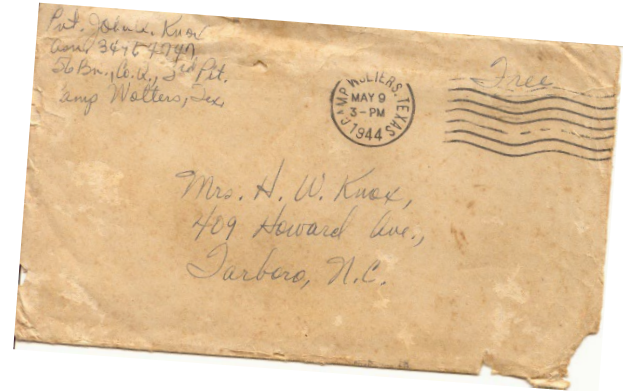 Pvt. John A. Knox
56 Bn., Co. A., 3rd Plt.
Camp Wolters, Tex.
CAMP WOLTERS, TEXAS
MAY 9
3-PM
1944
Free
Mrs. H. W. Knox,
409 Howard Ave.,
Tarboro, N.C.